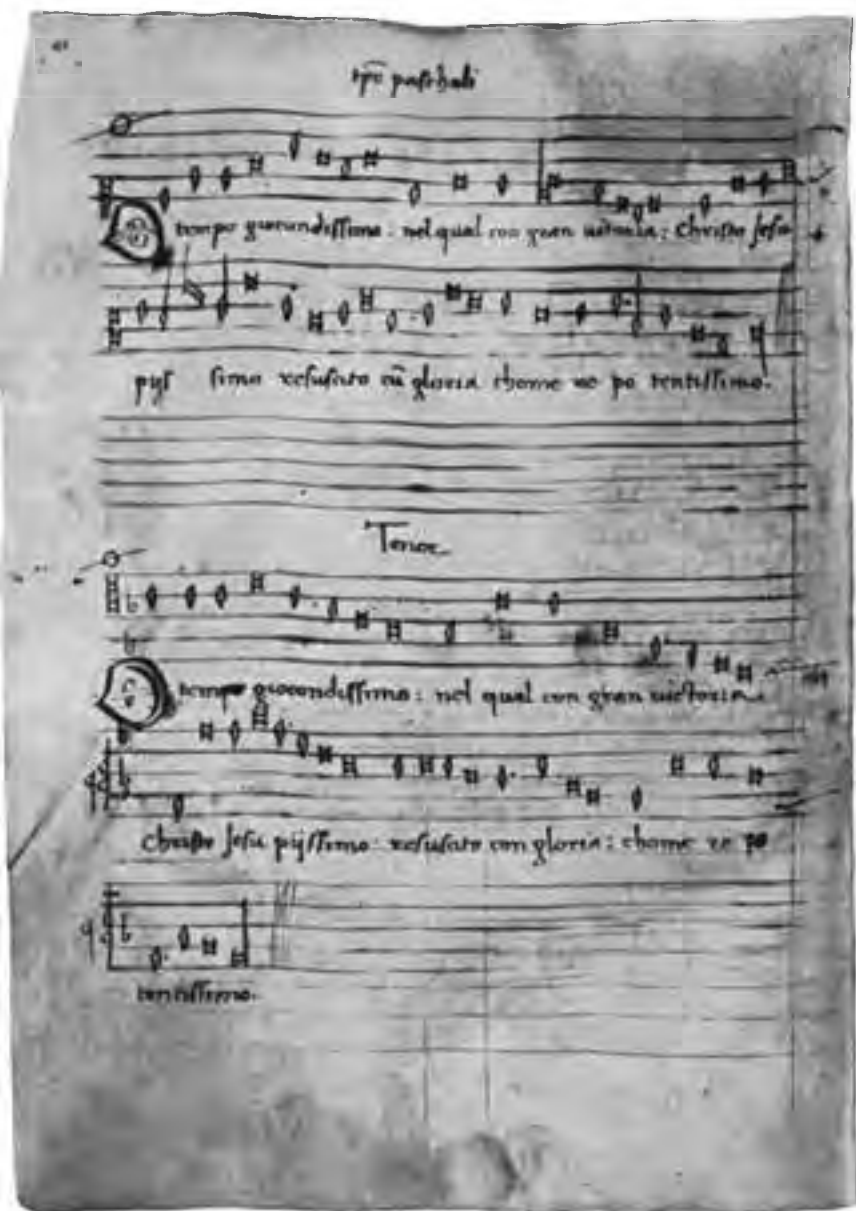 tp̄e paschali
O tempo giocondissimo: nel qual con gran uictoria: christo Jesu
pijs simo resusato cū gloria chome re po tentissimo.
Tenor
O tempo giocondissimo: nel qual con gran uictoria.
christo Jesu pijssimo: resusato con gloria: chome re po
tentissimo.